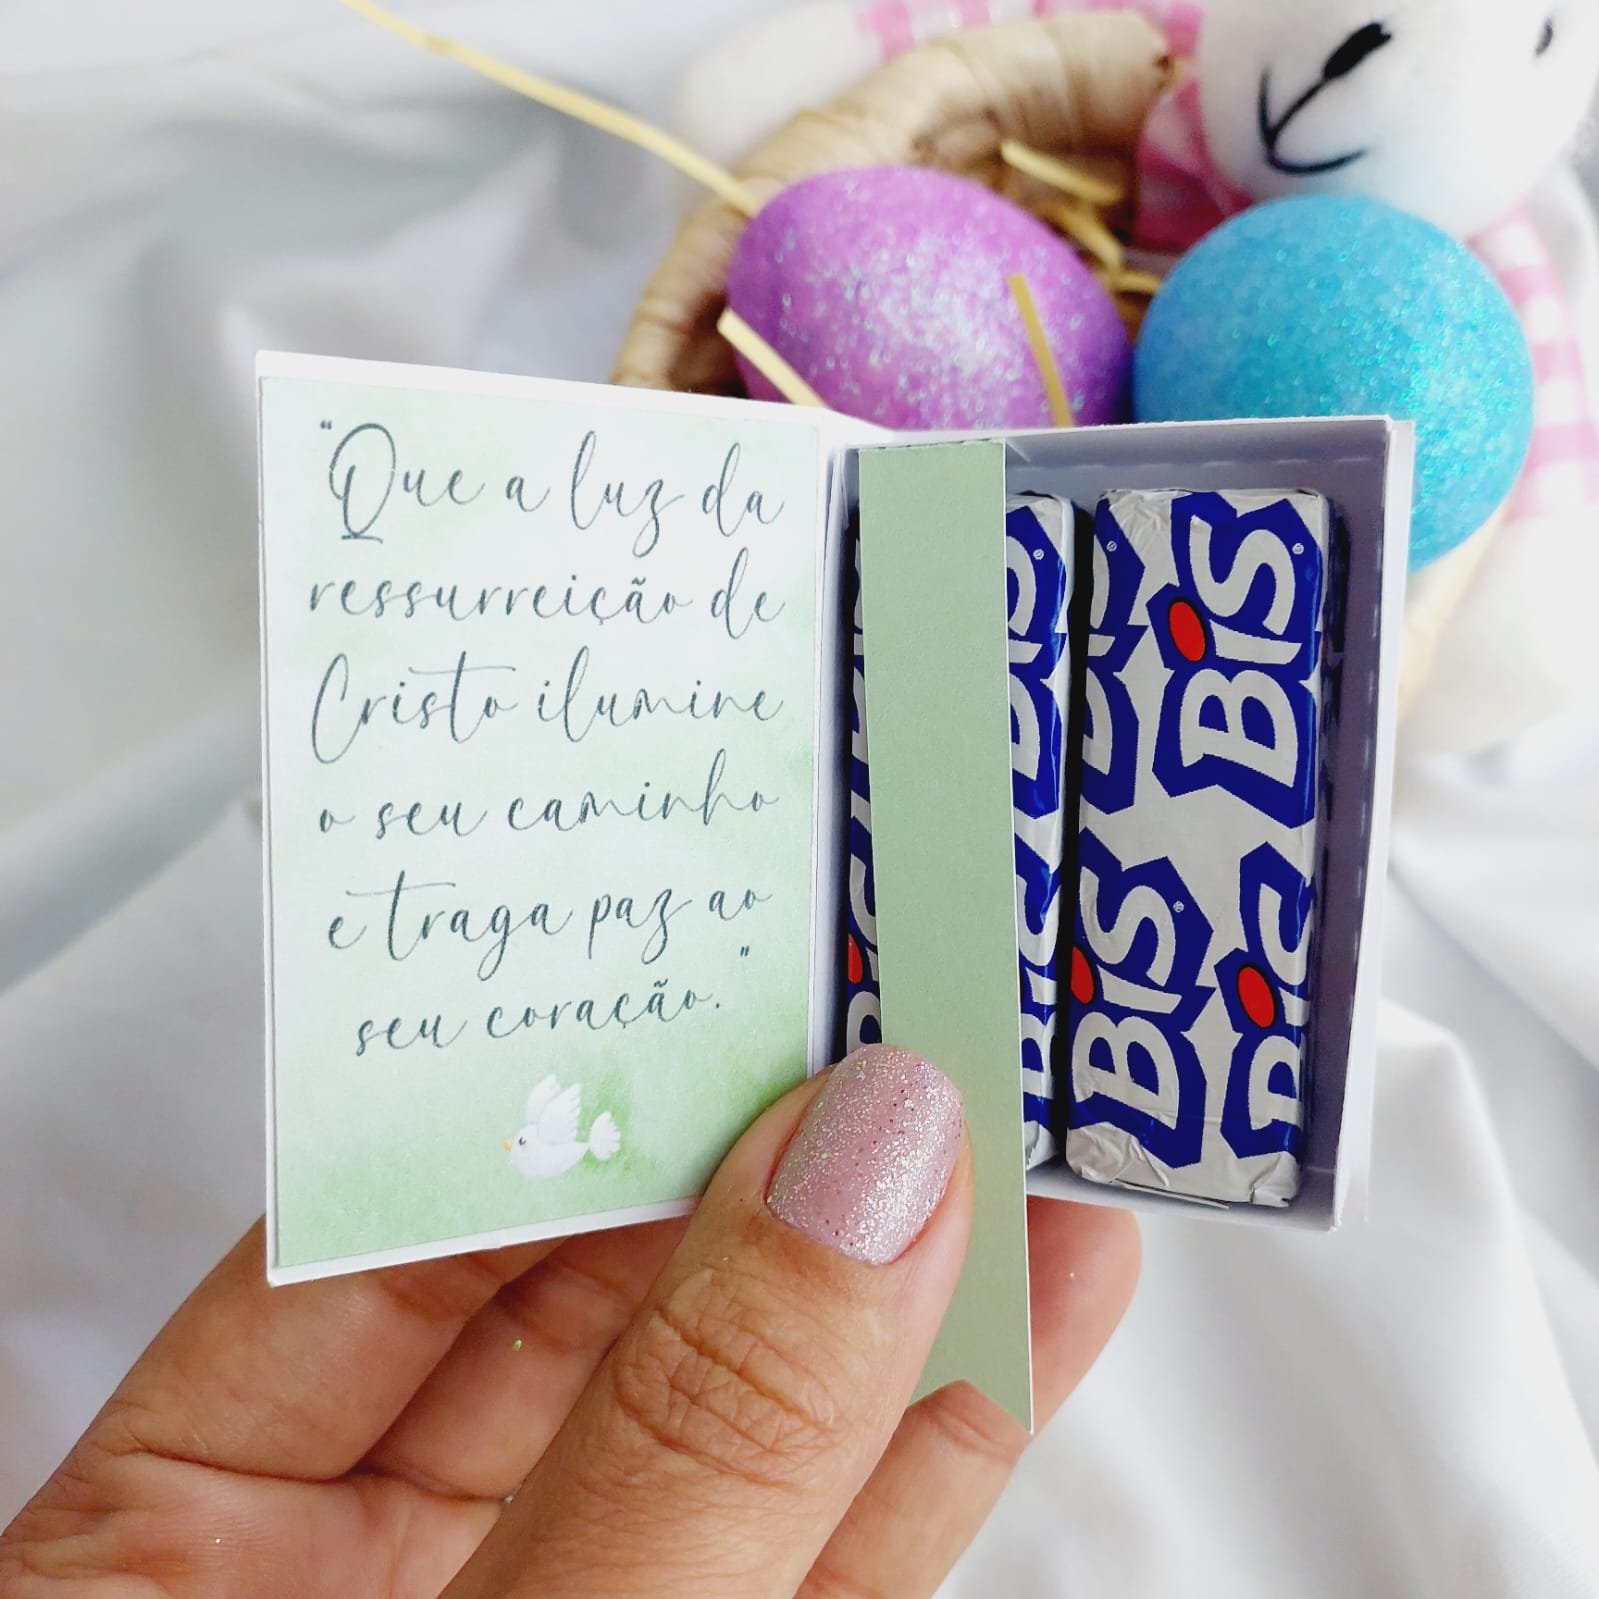 “Que a luz da
ressurreição de
Cristo ilumine
o seu caminho
e traga paz ao
seu coração.”
BIS
BIS
BIS
BIS